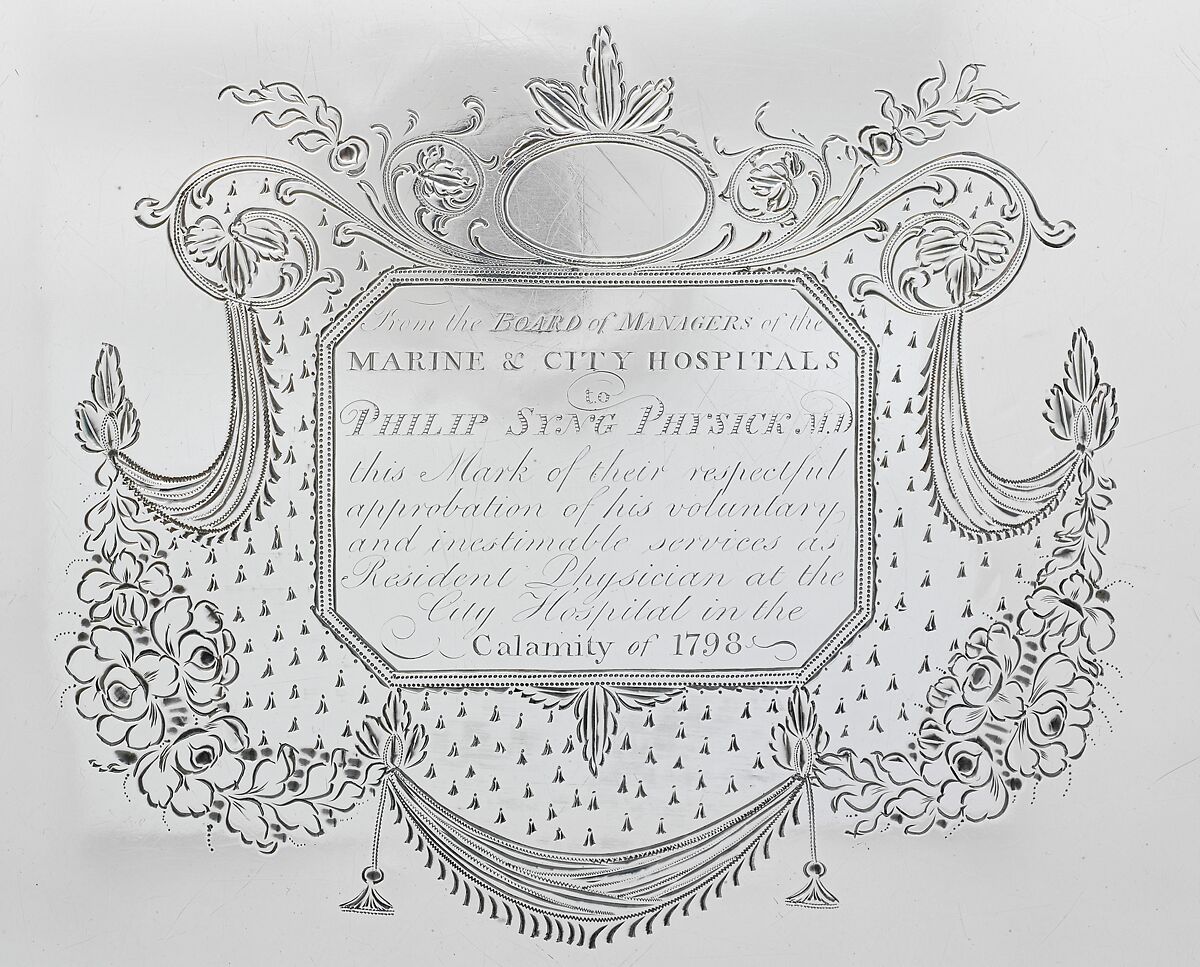 From the BOARD of MANAGERS of the
MARINE & CITY HOSPITALS
to
PHILIP SYNG PHYSICK, M.D
this Mark of their respectful
approbation of his voluntary
and inestimable services as
Resident Physician at the
City Hospital in the
Calamity of 1798